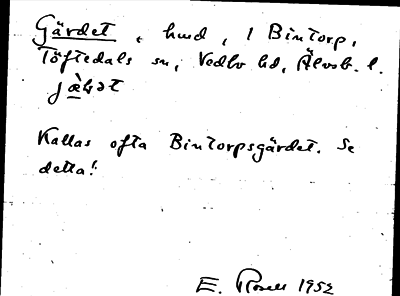 Gärdet, hmd, 1 Bintorp,
Töftedals sn, Vedbo hd, Älvsb. l.
Kallas ofta Bintorpsgärdet. Se
detta!
E. 1952